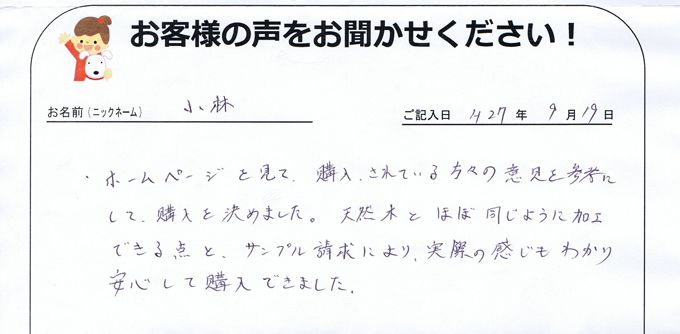 お客様の声をお聞かせください！
お名前（ニックネーム） 小林
ご記入日 H27 年 9 月 19 日
・ホームページを見て、購入されている方々の意見を参考に
して、購入を決めました。天然木とほぼ同じように加工
できる点と、サンプル請求により、実際の感じもわかり
安心して購入できました。